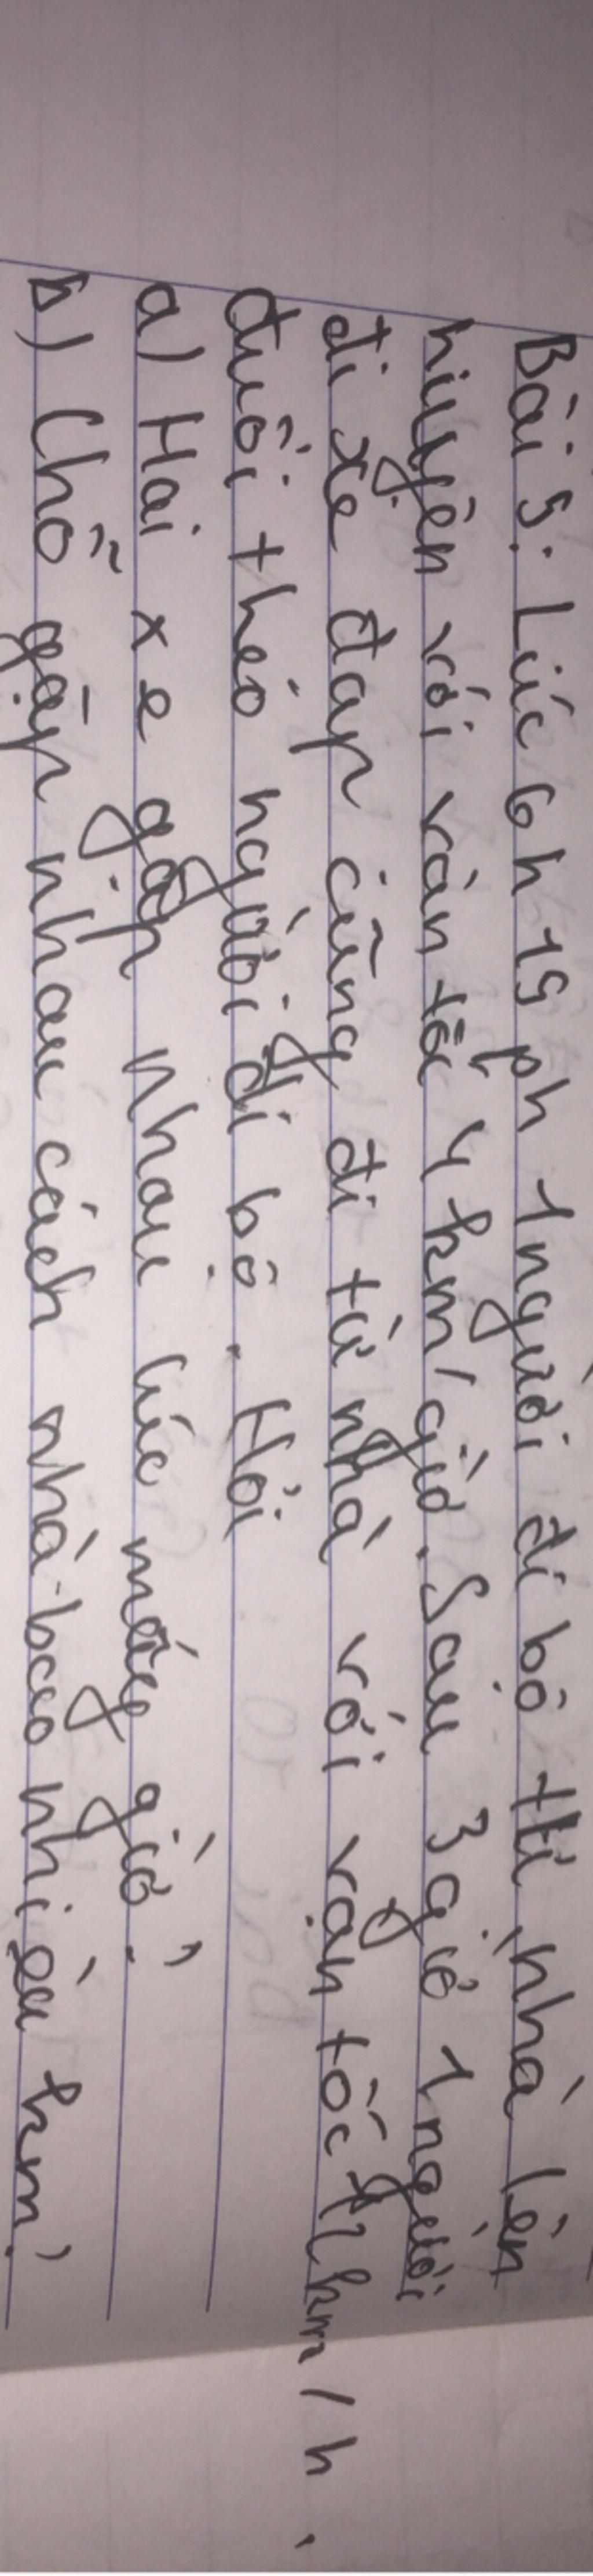 Bài 5: Lúc 6h15ph 1người đi bộ từ nhà lên
huyện với vận tốc 4km/giờ. Sau 3giờ 1người
đi xe đạp cũng đi từ nhà với vận tốc 12km/h,
đuổi theo người đi bộ. Hỏi
a) Hai xe gặp nhau lúc mấy giờ?
b) Chỗ gặp nhau cách nhà bao nhiêu km?